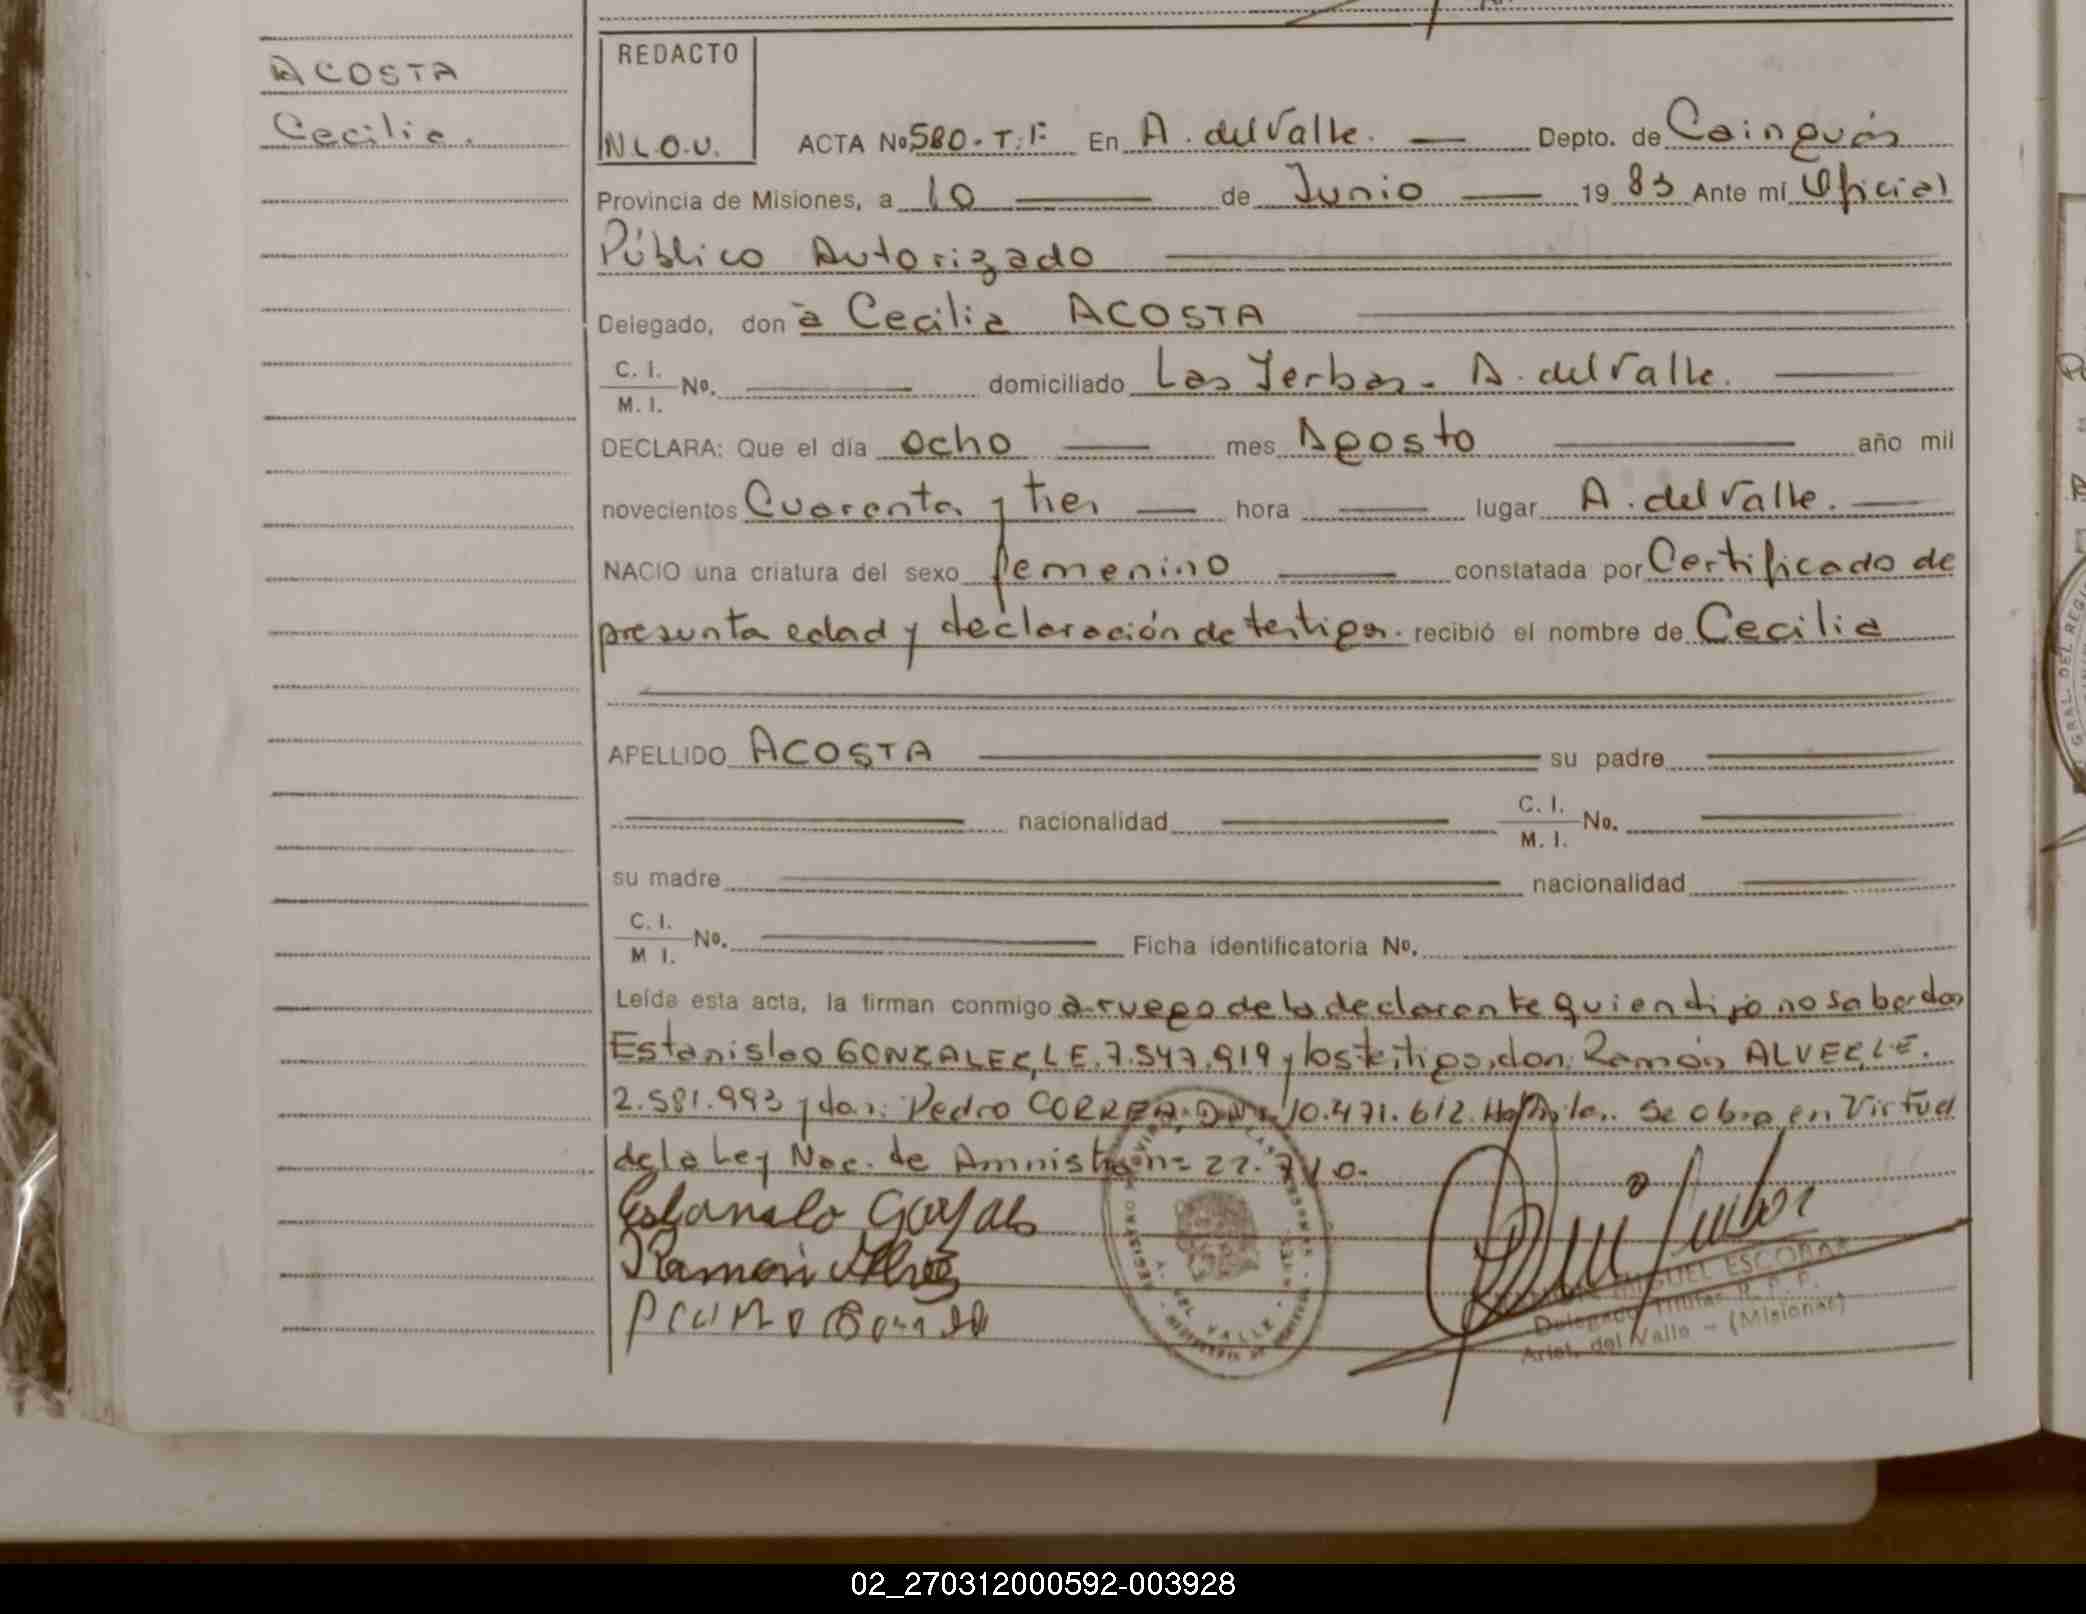 ACOSTA
Cecilia.
REDACTO
N.L.O.U.
ACTA Nº 580.T.F En A. del Valle. Depto. de Cainguás
Provincia de Misiones, a 10 de Junio 1983 Ante mí Oficial
Público Autorizado
Delegado, don a Cecilia ACOSTA
C. I.
M. I. Nº. domiciliado Las Yerbas. A. del Valle.
DECLARA: Que el día ocho mes Agosto año mil
novecientos Cuarenta y tres hora lugar A. del Valle.
NACIO una criatura del sexo femenino constatada por Certificado de
presunta edad y declaración de testigos. recibió el nombre de Cecilia
APELLIDO ACOSTA su padre
nacionalidad C. I.
M. I. Nº.
su madre nacionalidad
C. I.
M I. Nº. Ficha identificatoria Nº.
Leída esta acta, la firman conmigo a ruego de la declarante quien dijo no saber don
Estanislao GONZALEZ, L E. 7.547.919 y los testigos, don: Ramón ALVEZ, L E.
2.581.993 y don: Pedro CORREA, DNI. 10.471.612. Se obra en Virtud
de la Ley Nac. de Amnistía nº 22.710.
Ramon Alvez
MIGUEL ESCOBAR
Delegado Titular R. P. P.
Arist. del Valle - (Misiones)
DEL VALLE
GRAL. DEL REGI
02_270312000592-003928